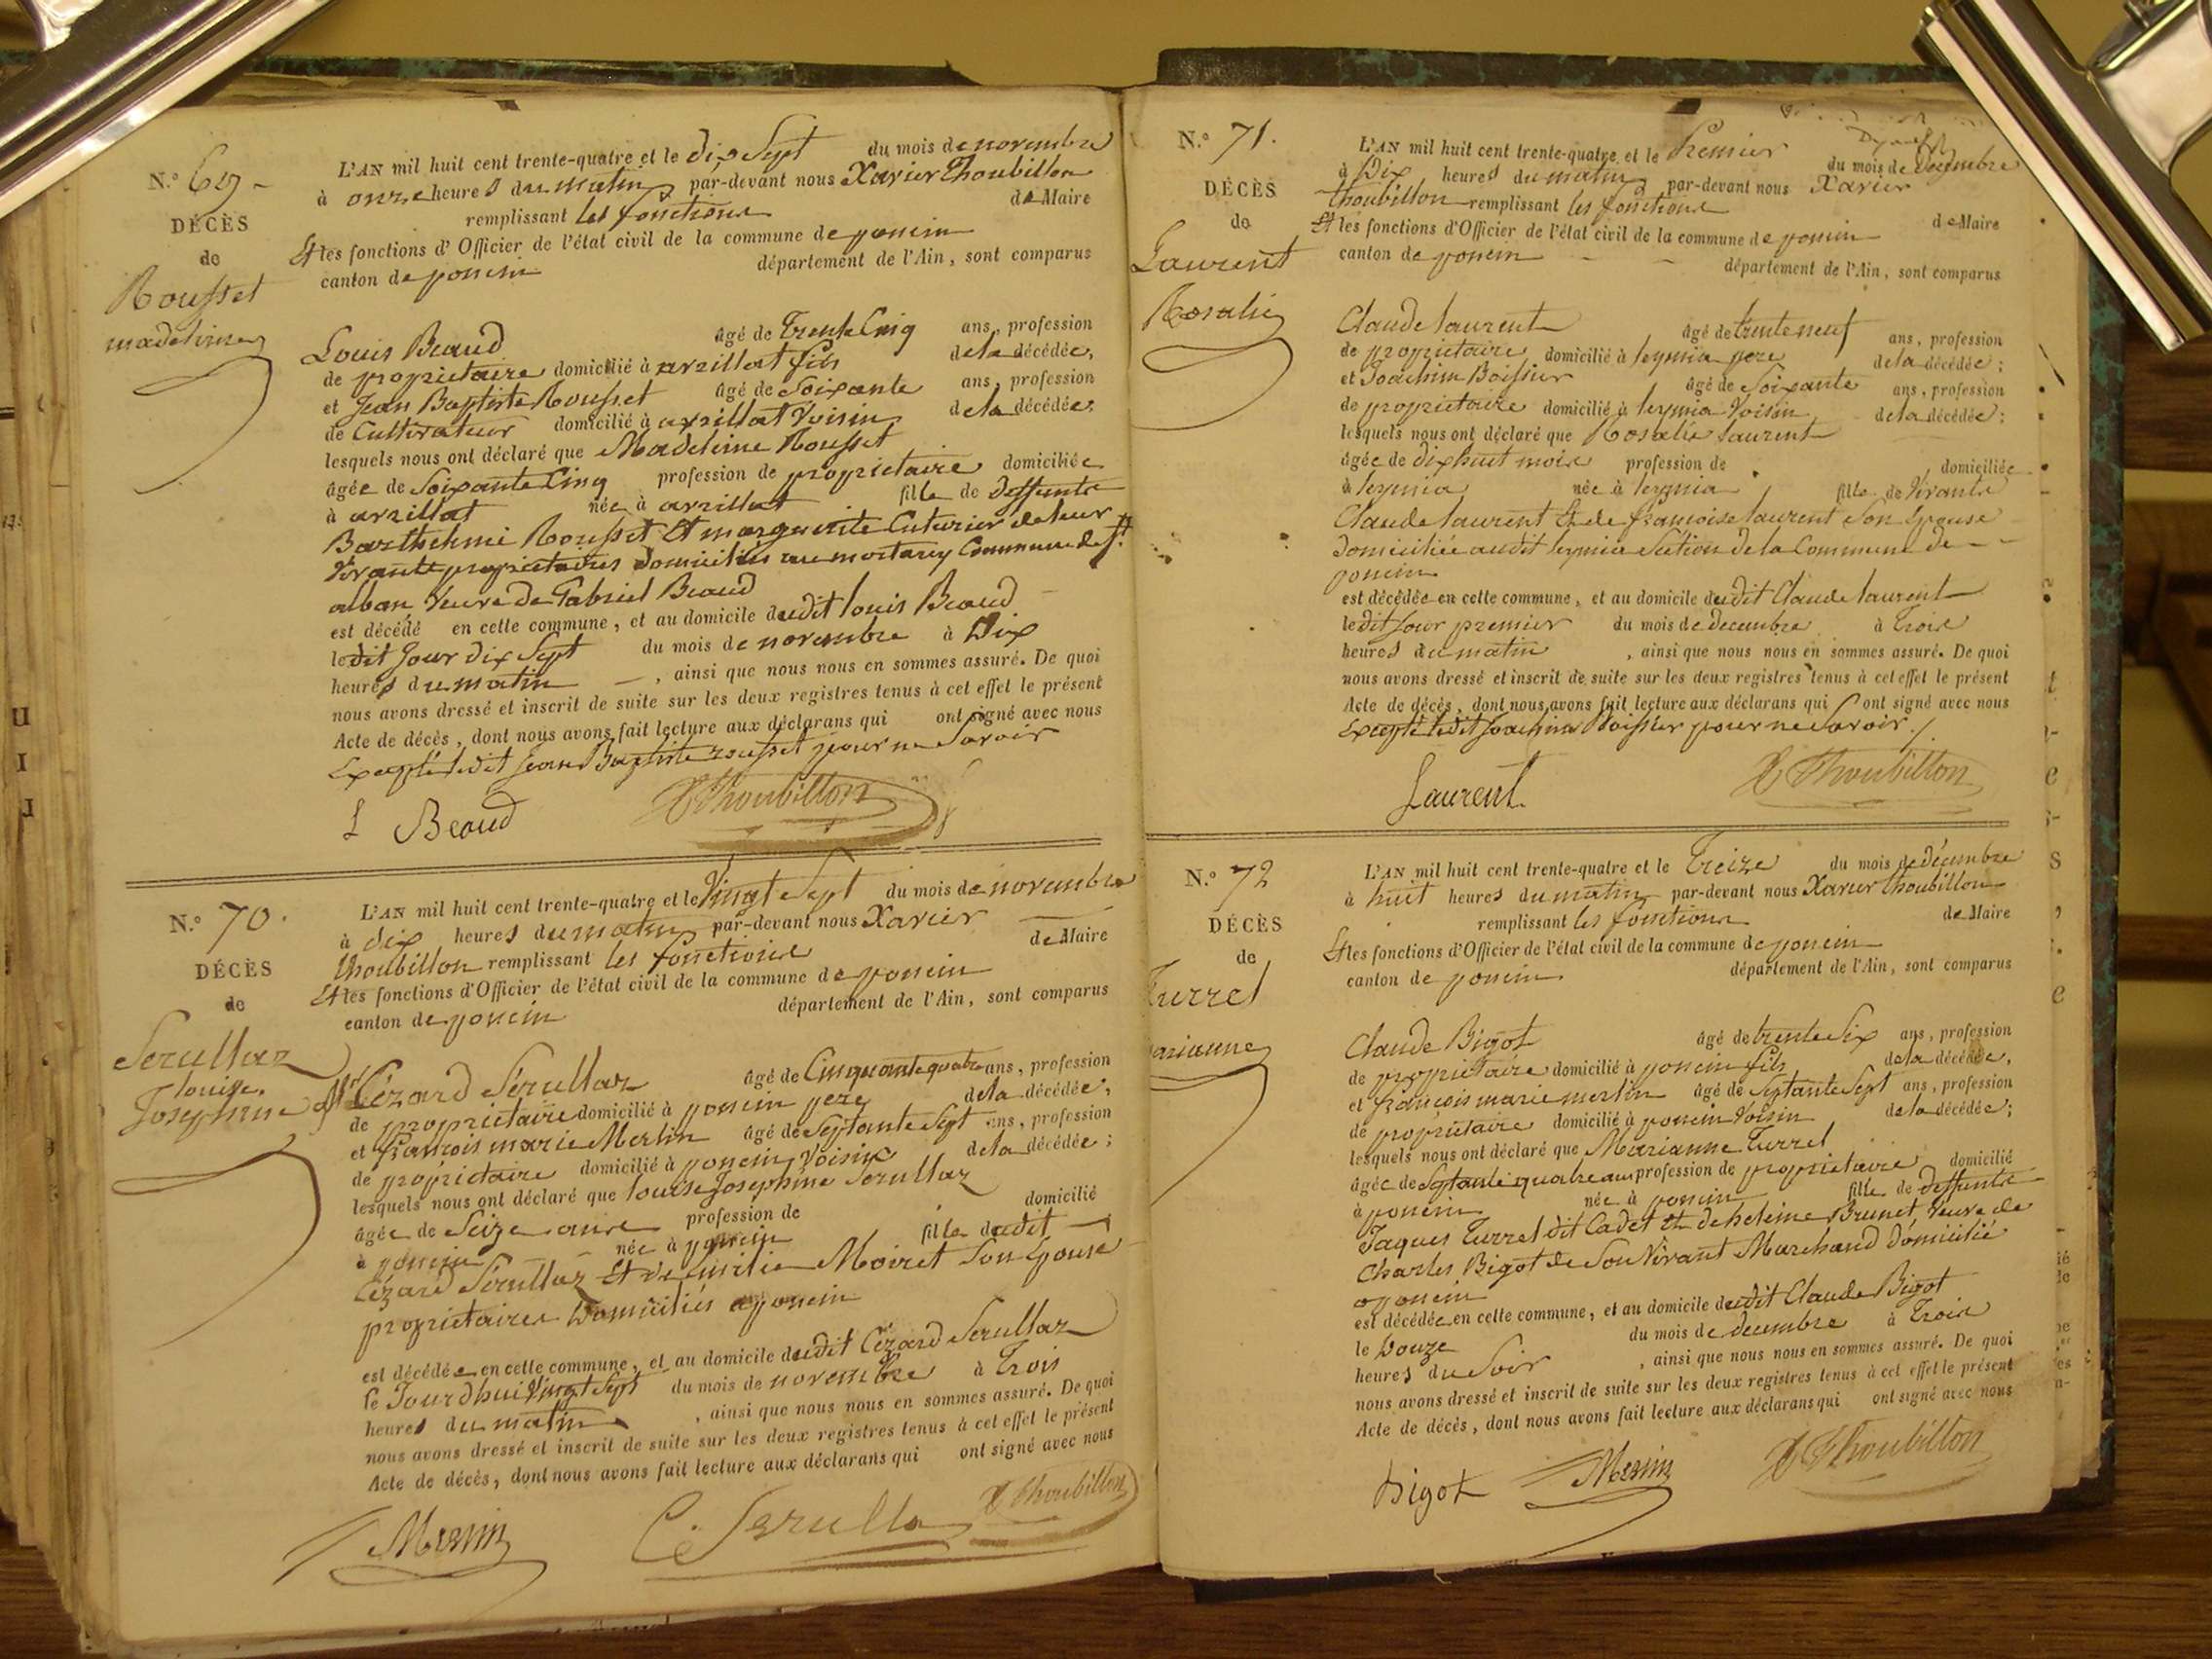 N.o 69
DÉCÈS
de
Rousset
madeleine
L'AN mil huit cent trente-quatre et le dix Sept du mois de novembre
à onze heures du matin par-devant nous Xavier Thoubillon
remplissant les fonctions de Maire
Et les fonctions d'Officier de l'état civil de la commune de poncin
canton de poncin département de l'Ain, sont comparus
Louis Beaud âgé de Trente Cinq ans, profession
de proprietaire domicilié à arzillat fils de la décédée,
et Jean Baptiste Rousset âgé de Soixante ans, profession
de Cultivateur domicilié à arzillat Voisin de la décédée;
lesquels nous ont déclaré que Madeleine Rousset
âgée de Soixante Cinq profession de proprietaire domiciliée
à arzillat née à arzillat fille de deffunts
Barthelemi Rousset Et marguerite Cuturier de leur
Vivants proprietaires domiciliés au mortarey Commune de St.
alban Veuve de Gabriel Beaud
est décédé en cette commune, et au domicile dudit louis Beaud
le dit Jour dix Sept du mois de novembre à Dix
heures du matin , ainsi que nous nous en sommes assuré. De quoi
nous avons dressé et inscrit de suite sur les deux registres tenus à cet effet le présent
Acte de décès, dont nous avons fait lecture aux déclarans qui ont signé avec nous
Excepté ledit Jean Baptiste rousset pour ne Savoir
L Beaud X Thoubillon
N.o 70.
DÉCÈS
de
Serullaz
louise
Josephine
L'AN mil huit cent trente-quatre et le Vingt Sept du mois de novembre
à dix heures du matin par-devant nous Xavier
thoubillon remplissant les fonctions de Maire
Et les fonctions d'Officier de l'état civil de la commune de poncin
canton de poncin département de l'Ain, sont comparus
Mr Cézard Sérullaz âgé de Cinquante quatre ans, profession
de proprietaire domicilié à poncin pere de la décédée,
et françois marie Merlin âgé de Septante Sept ans, profession
de propriétaire domicilié à poncin Voisin de la décédée;
lesquels nous ont déclaré que louise Josephine Serullaz
âgée de Seize ans profession de domicilié
à poncin née à poncin fille dudit
Cézard Sérullaz Et d'emilie Moiret Son Epouse
proprietaires Domiciliés a poncin
est décédée en cette commune, et au domicile dudit Cézard Serullaz
le Jourdhui Vingt Sept du mois de novembre à Trois
heures du matin , ainsi que nous nous en sommes assuré. De quoi
nous avons dressé et inscrit de suite sur les deux registres tenus à cet effet le présent
Acte de décès, dont nous avons fait lecture aux déclarans qui ont signé avec nous
Merlin C. Serulla X Thoubillon
N.o 71.
DÉCÈS
de
Laurent
Rosalie
L'AN mil huit cent trente-quatre et le Premier du mois de Decembre
à Dix heures du matin par-devant nous Xavier
thoubillon remplissant les fonctions de Maire
Et les fonctions d'Officier de l'état civil de la commune de poncin
canton de poncin département de l'Ain, sont comparus
Claude laurent âgé de trente neuf ans, profession
de proprietaire domicilié à leymia pere de la décédée;
et Joachim Boissier âgé de Soixante ans, profession
de proprietaire domicilié à leymia Voisin de la décédée;
lesquels nous ont déclaré que Rosalie laurent
âgée de dix huit mois profession de domiciliée
à leymia née à leymia fille de Vivants
Claude laurent Et de françoise laurent Son Epouse
Domiciliée audit leymia Section de la Commune de
poncin
est décédée en cette commune, et au domicile dudit Claude laurent
le dit Jour premier du mois de decembre à Trois
heures du matin , ainsi que nous nous en sommes assuré. De quoi
nous avons dressé et inscrit de suite sur les deux registres tenus à cet effet le présent
Acte de décès, dont nous avons fait lecture aux déclarans qui ont signé avec nous
Excepté ledit Joachim Boissier pour ne Savoir.
Laurent X Thoubillon
N.o 72
DÉCÈS
de
Turrel
arianne
L'AN mil huit cent trente-quatre et le Treize du mois de décembre
à huit heures du matin par-devant nous Xavier thoubillon
remplissant les fonctions de Maire
Et les fonctions d'Officier de l'état civil de la commune de poncin
canton de poncin département de l'Ain, sont comparus
Claude Bigot âgé de trente Six ans, profession
de propriétaire domicilié à poncin fils de la décédée,
et françois marie merlin âgé de Septante Sept ans, profession
de propriétaire domicilié à poncin Voisin de la décédée;
lesquels nous ont déclaré que Marianne Turrel
âgée de Septante quatre ans profession de proprietaire domicilié
à poncin née à poncin fille de deffunts
Jaques Turrel dit Cadet Et de heleine Brunet Veuve de
Charles Bigot de Son Vivant Marchand domicilié
a poncin
est décédée en cette commune, et au domicile dudit Claude Bigot
le Douze du mois de decembre à Trois
heures du Soir , ainsi que nous nous en sommes assuré. De quoi
nous avons dressé et inscrit de suite sur les deux registres tenus à cet effet le présent
Acte de décès, dont nous avons fait lecture aux déclarans qui ont signé avec nous
Bigot Merlin X Thoubillon